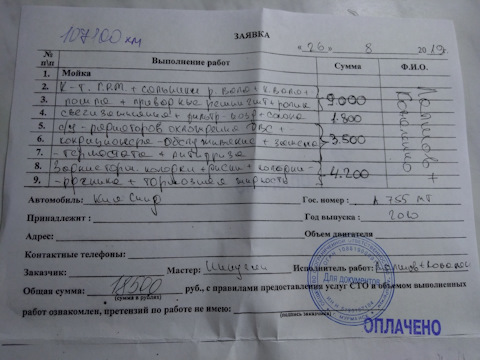 107100 км
ЗАЯВКА
« 26 » 8 2019г.
№ п/п Выполнение работ Сумма Ф.И.О.
1. Мойка
2. К-т. ГРМ + сальники р. вала + к. вала +
3. помпа + приводные ремни 2шт + ролик 9000
4. свечи зажигания + фильтр возд + салона 1.800
5. с/у - радиаторов охлаждения ДВС +
6. кондиционера - обслуживание + замена 3.500
7. - термостата + антифриза
8. Задние торм. колодки + диски + колодки - 4.200
9. - ручника + тормозная жидкость
Лапшов + Коваленко
Автомобиль: Киа Сид Гос. номер: А 755 МТ
Принадлежит : Год выпуска : 2010
Адрес: Объем двигателя
Контактные телефоны:
Заказчик: Мастер: Исполнитель работ:
Общая сумма: 18500 руб., с правилами предоставления услуг СТО и объемом выполненных
(сумма в рублях)
работ ознакомлен, претензий по работе не имею:
(подпись заказчика)
Для документов
ОПЛАЧЕНО